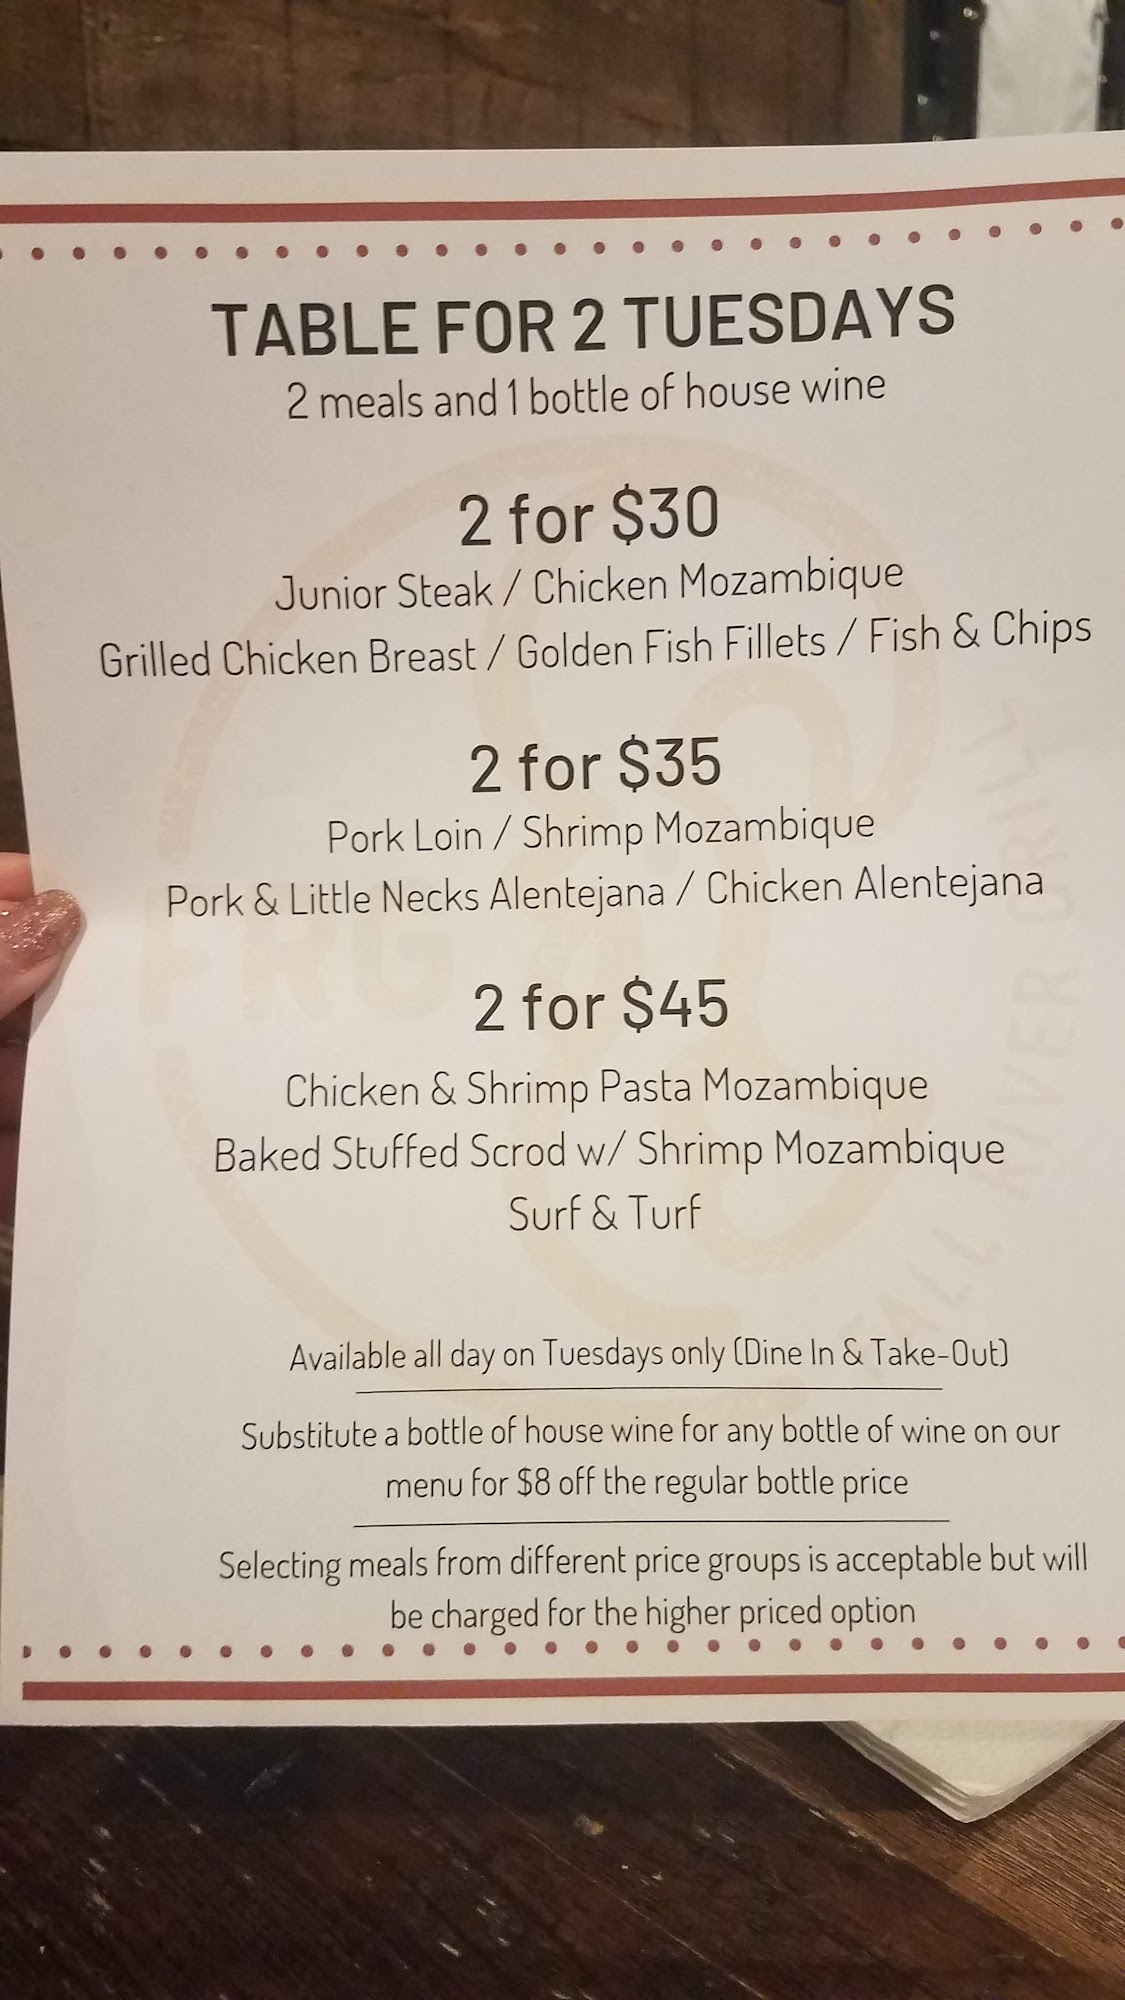 TABLE FOR 2 TUESDAYS
2 meals and 1 bottle of house wine
2 for $30
Junior Steak / Chicken Mozambique
Grilled Chicken Breast / Golden Fish Fillets / Fish & Chips
2 for $35
Pork Loin / Shrimp Mozambique
Pork & Little Necks Alentejana / Chicken Alentejana
2 for $45
Chicken & Shrimp Pasta Mozambique
Baked Stuffed Scrod w/ Shrimp Mozambique
Surf & Turf
Available all day on Tuesdays only (Dine In & Take-Out)
Substitute a bottle of house wine for any bottle of wine on our
menu for $8 off the regular bottle price
Selecting meals from different price groups is acceptable but will
be charged for the higher priced option
FRG
FALL RIVER GRILL